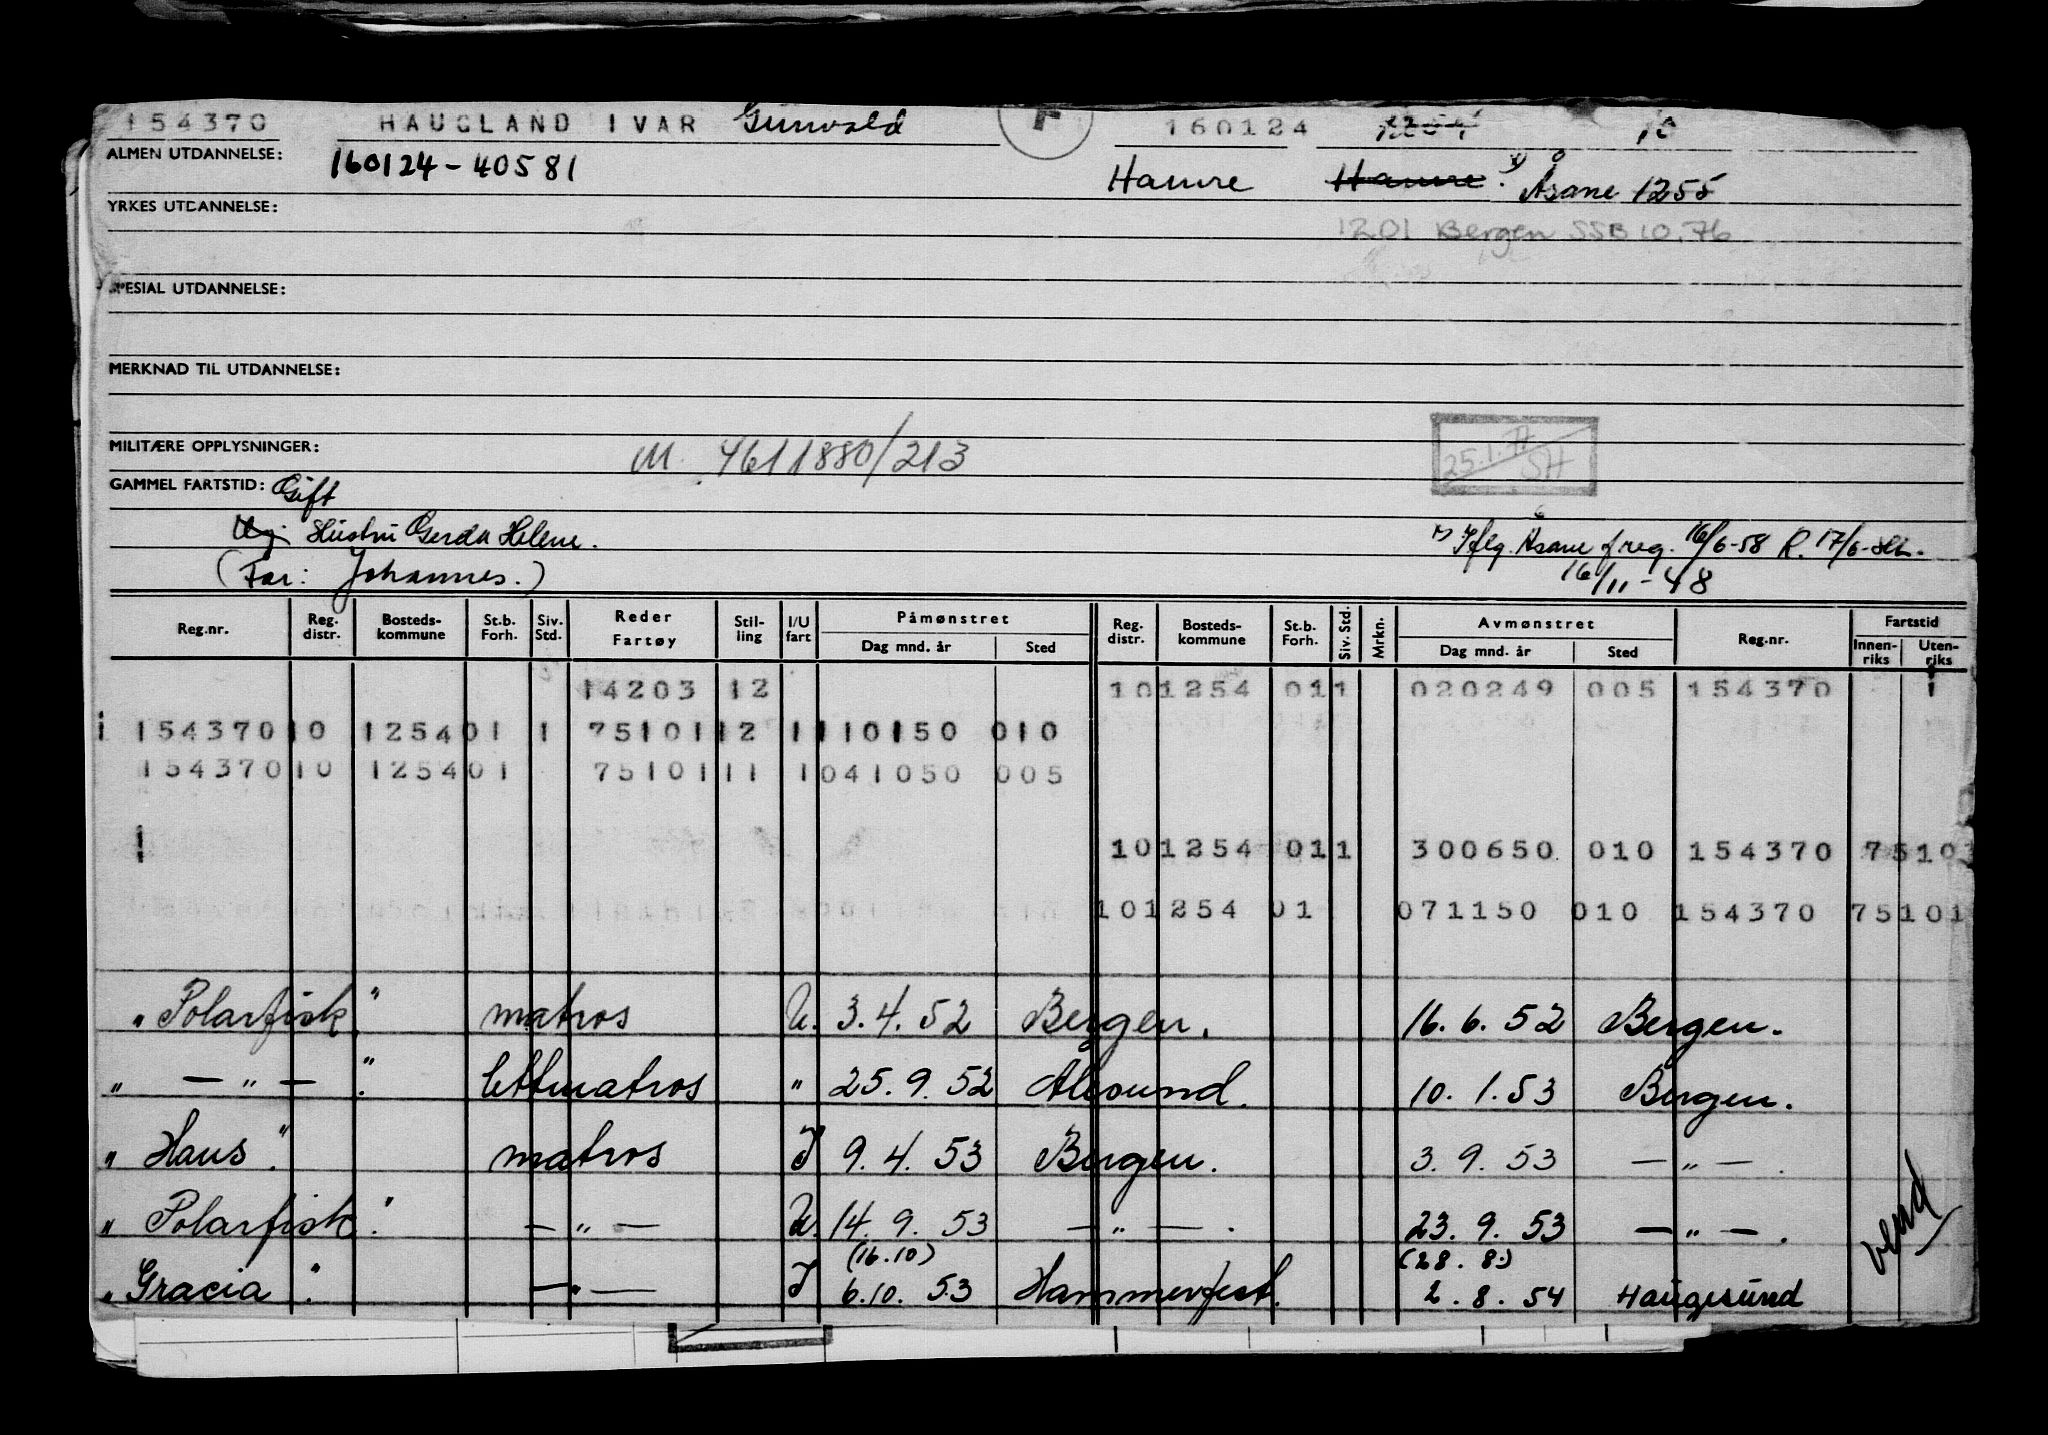 154370 HAUGLAND IVAR Gunvald F 160124 1254 10
ALMEN UTDANNELSE: 160124-40581 Hamre Hamre. x) Åsane 1255
YRKES UTDANNELSE: 1201 Bergen SSB 10.76
SPESIAL UTDANNELSE:
MERKNAD TIL UTDANNELSE:
MILITÆRE OPPLYSNINGER: M. 4611880/213
25.1.77 SH
GAMMEL FARTSTID: Gift
Ug. Hustru Gerda Helene.
x) Iflg. Åsane f.reg. 16/6-58 R. 17/6-
(Far: Johannes.) 16/11-48
Reg.nr. Reg. distr. Bosteds-kommune St.b. Forh. Siv. Std. Reder Fartøy Stil-ling I/U fart Påmønstret Dag mnd. år Sted Reg. distr. Bosteds-kommune St.b. Forh. Siv. Std. Mrkn. Avmønstret Dag mnd. år Sted Reg.nr. Fartstid Innen-riks Uten-riks
14203 12 10 1254 01 1 020249 005 154370 1
1 154370 10 1254 01 1 75101 12 1 110150 010
154370 10 1254 01 75101 11 1 041050 005
1 10 1254 01 1 300650 010 154370 75101
10 1254 01 071150 010 154370 75101
"Polarfisk" matros U. 3.4.52 Bergen. 16.6.52 Bergen.
" — " — " lettmatros " 25.9.52 Ålesund. 10.1.53 Bergen.
"Haus". matros I 9.4.53 Bergen. 3.9.53 — " — .
"Polarfisk". — " — U. 14.9.53 — " — . 23.9.53 — " — .
(16.10) (28.8.)
"Gracia". — " — I 6.10.53 Hammerfest. 2.8.54 Haugesund
vend